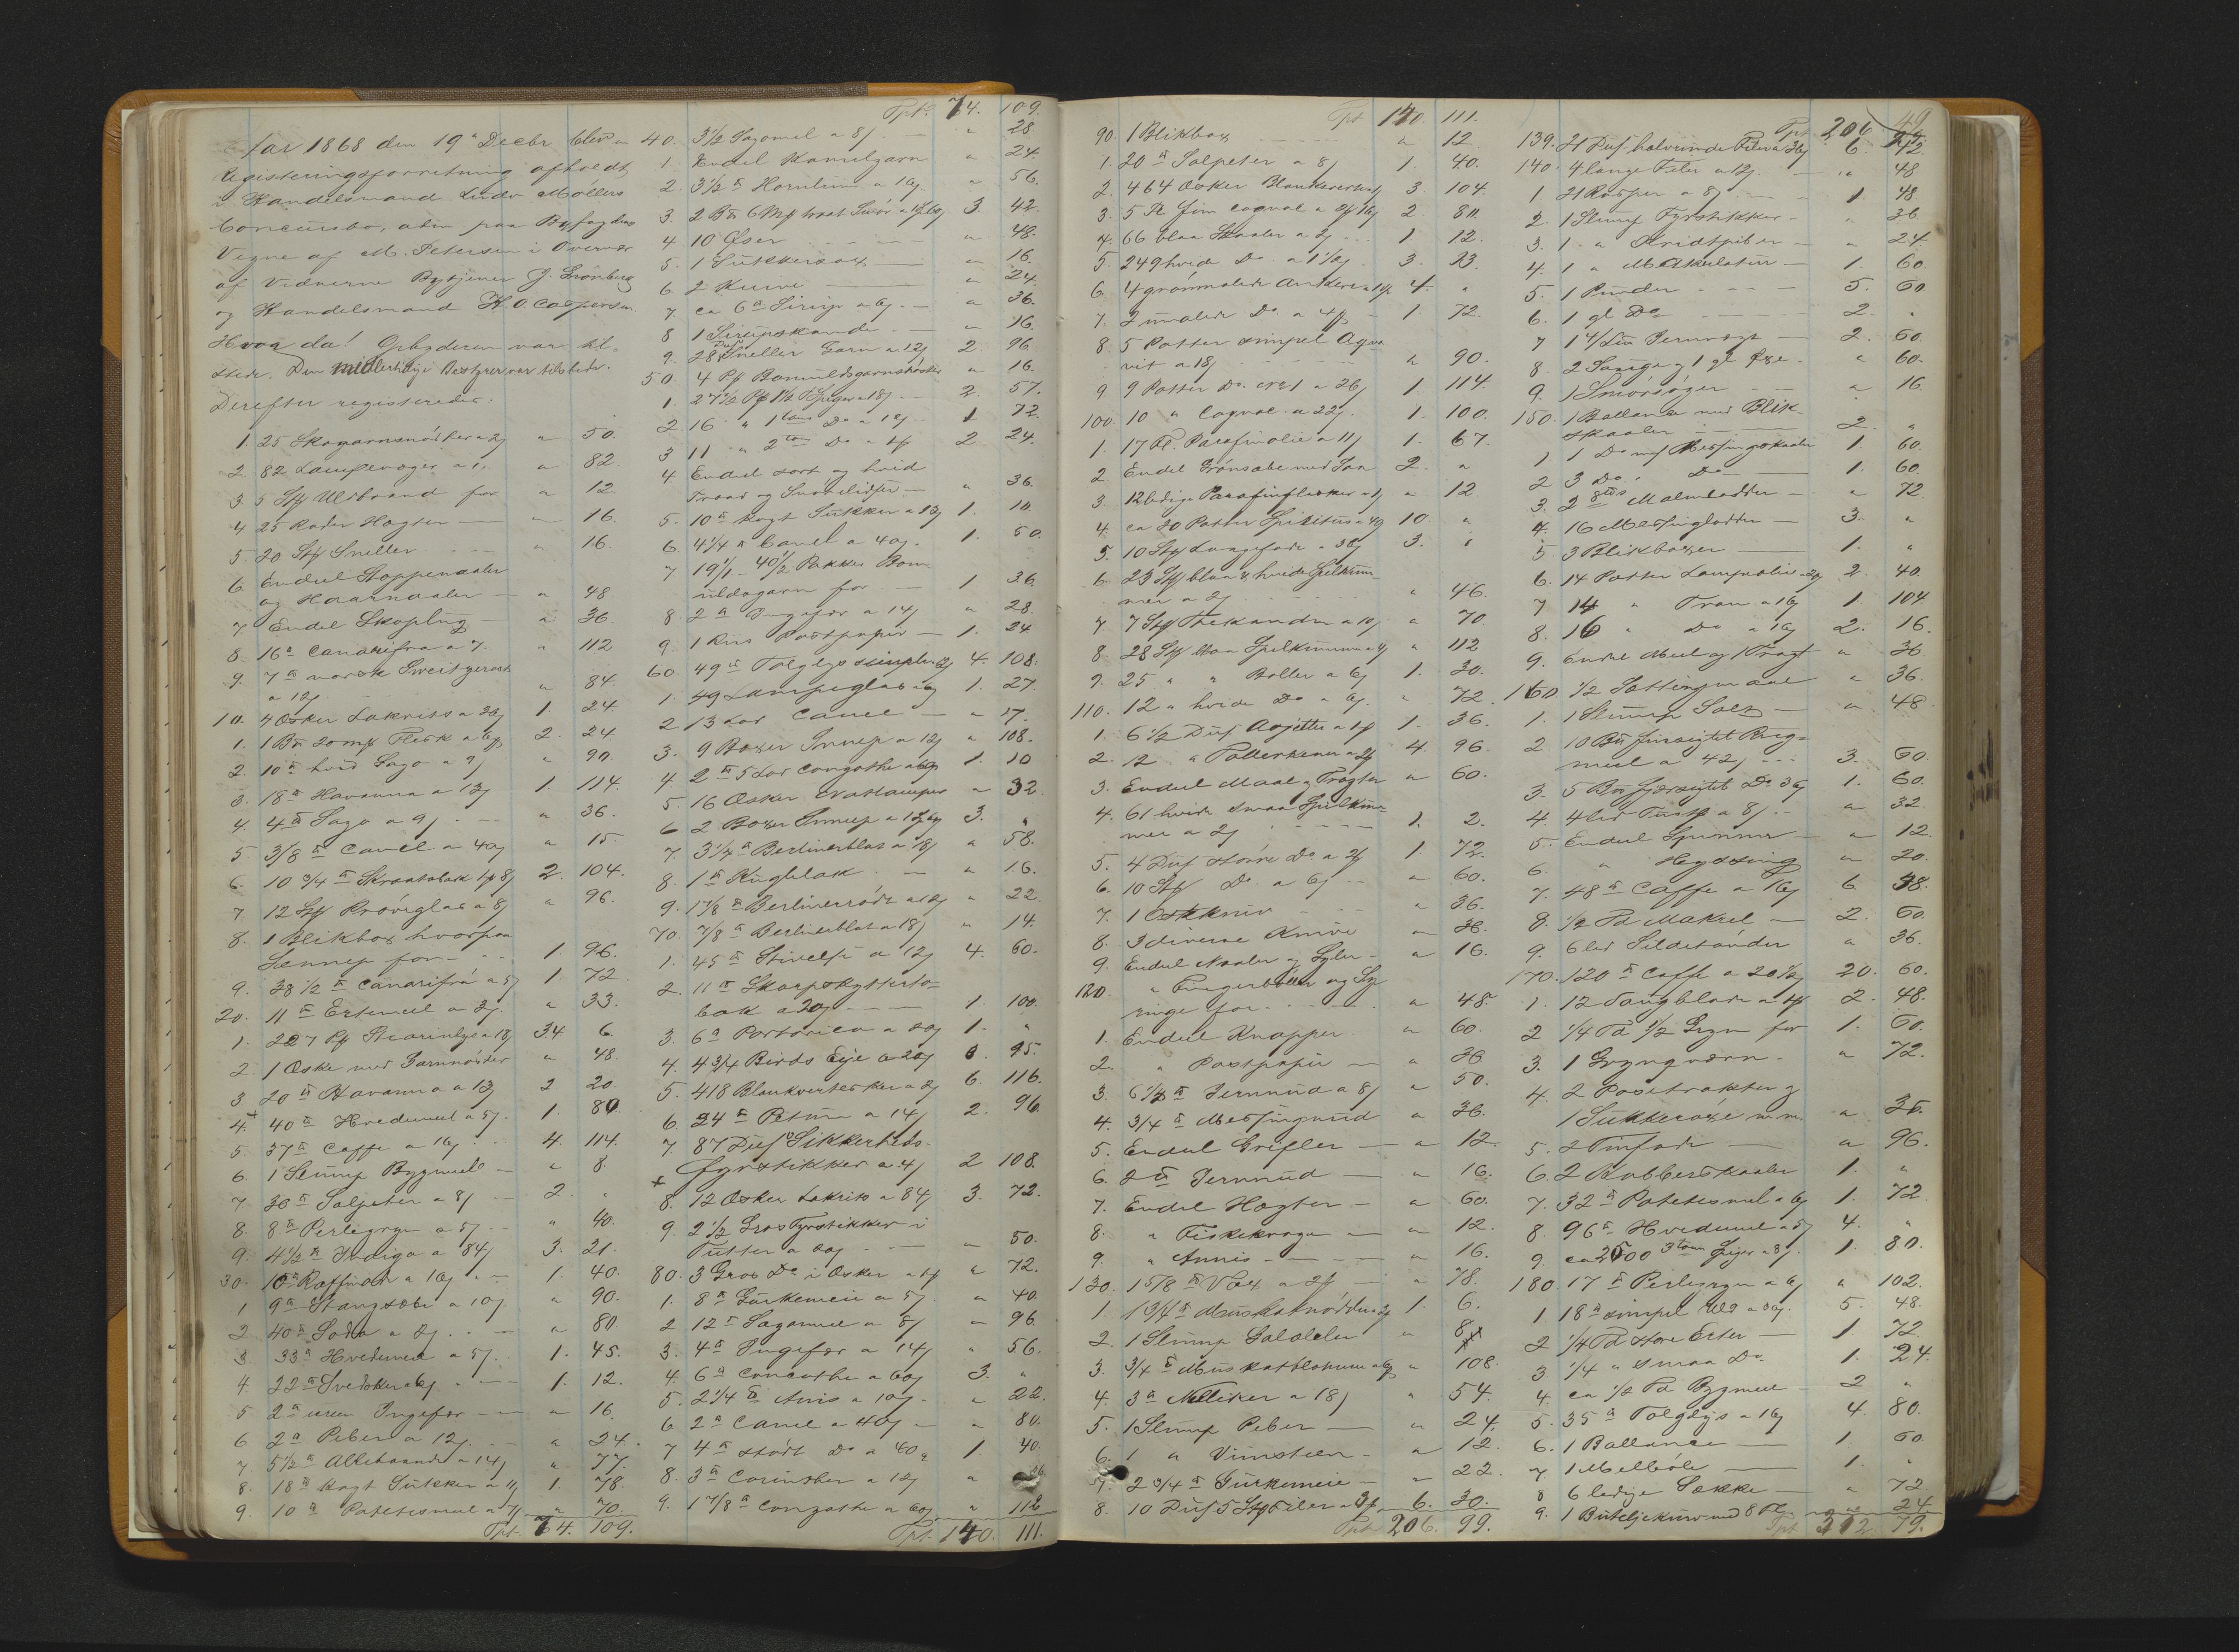 Aar 1868 den 19de Decbr blev en
Registeringsforretning afholdt
i Handelsmand Ludv. Møllers
Concursbo, alm paa Byfogdens
Vegne af M. Petersen i Overvær
af Vidnerne Bytjener J. Grønberg
og Handelsmand H. O. Caspersen
Hvor da! Opbyderen var til-
stede. Den midlertidige Bestyrer var tilstede.
Derefter registeredes:
1. 25 Skogarnsnøster a 2ß " 50.
2. 82 Lampevæger a 1. " 82
3 5 Stk Uldbaand for " 12
4 25 Rader Hægter — " 16.
5. 20 Stk Sneller - - - " 16.
6 Endeel Stoppenaaler
og Haarnaaler — " 48
7. Endel Skopling — " 36
8. 16 ℔ Canarifrø a 7. " 112
9. 7 ℔ norsk Sweitzerost
a 12ß " 84.
10. 4 Æsker Lakrits a 36ß 1. 24
1. 1 Bᵖ 20 mk Flesk a 6ß 2. 24
2. 10 ℔ hvid Sago a 9ß " 90
3. 18 ℔ Havanna a 13ß 1. 114.
4. 4 ℔ Sago a 9ß - - " 36.
5 3/8 ℔ Canel a 40ß " 15.
6. 10 3/4 ℔ Skraatobak 2. 104.
7. 12 Stk Prøveglas a 8ß " 96.
8. 1 Blikbox hvorpaa
Sennep for - - - 1. 96.
9. 38 1/2 ℔ Canarifrø a 5ß 1. 72
20. 11 ℔ Ertemeel a 3ß. " 33.
1. 227 Pk Stearinlys a 18ß 34 6
2. 1 Æske med Garnnøster " 48.
3 20 ℔ Havanna a 13ß 2 20.
4. 40 ℔ Hvedemeel a 5ß. 1. 80
5. 37 ℔ Caffe a 16ß - - 4. 114.
6. 1 Slump Bygmeel — " 8.
7. 30 ℔ Salpeter a 8ß — 2. "
8. 8 ℔ Perlegryn a 5ß - - " 40.
9. 4 1/2 ℔ Indigo a 84ß 3. 21.
30. 10 ℔ Raffinade a 16ß " - 1. 40.
1 9 ℔ Stangsæbe a 10ß " 90.
2 40 ℔ Soda a 2ß. - - " 80.
3. 33 ℔ Hvedemeel a 5ß. 1. 45.
4. 22 ℔ Svedsker a 6ß - - 1. 12.
5 2 ℔ Ingefær - - " 16.
6 2 ℔ Peber a 12ß. - - " 24.
7 5 1/2 ℔ Allehaande a 14ß " 77.
8. 18 ℔ Kogt Sukker a 11ß 1 78.
9. 10 ℔ Potetesmel a 7ß " 70.
Tpt. 74. 109.
Tpt. 74. 109.
40. 3 1/2 Sagomel a 8ß - - " 28
1. Endel Kamelgarn " 24.
2. 3 1/2 ℔ Hornlim a 16ß. " 56.
3. 2 Bᵖ 6 Mk Smør 3. 42.
4 10 Øser - - - - " 48.
5. 1 Sukkersax — " 16.
6 2 Kurve — " 24.
7 ca 6 ℔ Sirup a 6ß - - " 36.
8 1 Sirupskande - - " 16.
9. 28 Dusin Sneller Garn a 12ß 2. 96.
50 4 Pk Bomuldsgarnsnøster " 16.
1. 27 1/2 Pk 1 1/2 T Spiger a 18ß - 2. 57.
2. 16 " 1 tom Do a 12ß 1 72.
3 11 " 2 tom Do 2 24.
4 Endel sort og hvid
Traad og Snørelidser — " 36.
5. 10 ℔ Kogt Sukker a 13ß 1. 10.
6. 4 1/4 ℔ Canel a 40ß. 1. 50.
7 19 1/1 - 40 1/2 Pakker Bom-
uldsgarn for — 1 36.
8 2 ℔ Ingefær a 14ß " 28.
9. 1 Riis Postpapir — 1. 24
60. 49 ℔ Tolglys simple 4. 108.
1. 49 Lampeglas 1. 27.
2 13 Lod Canel — " 17.
3. 9 Boxer Sennep a 12ß " 108.
4. 2 ℔ 5 Lod Congothe 1. 10
5. 16 Æsker Natlamper " 32.
6. 2 Boxer Sennep 3. "
7. 3 1/4 ℔ Berlinerblaat a 18ß " 58.
8. 1 ℔ Kuglelak — " 16.
9. 1 7/8 ℔ Berlinerrødt a 12ß " 22.
70. 7/8 ℔ Berlinerblaat a 18ß " 14.
1. 45 ℔ Stivelse a 12ß 4. 60.
2. 11 ℔ Skarpskyttertobak
a 20ß — 1. 100.
3. 6 ℔ Portorico a 20ß 1. "
4. 4 3/4 Birds Eye a 20ß " 95.
5. 418 Blankvertesker a 2ß 6. 116.
6. 24 ℔ Petum a 14ß 2. 96
7. 87 Dus Sikkerheds-
fyrstikker a 4ß 2 108.
8. 12 Æsker Lakrits a 84ß 3. 72.
9. 2 1/2 Gros Fyrstikker i
Tutter a 20ß - - " 50.
80. 3 Gros Do i Æsker " 72.
1. 8 ℔ Gurkemeie a 5ß " 40
2 12 ℔ Sagomeel a 8ß " 96.
3. 4 ℔ Ingefær a 14ß " 56.
4. 6 ℔ Congothe a 60ß 3. "
5. 2 1/4 ℔ Anis a 10ß - " 22.
6 2 ℔ Canel a 40ß - " 80.
7 4 ℔ stødt Do a 40ß 1. 40.
8. 3 ℔ Corinther a 12ß " 36
9. 1 7/8 ℔ Congothe a 60ß " 112
Tpt. 140. 111.
Tpt 140. 111.
90. 1 Blikbox - - - - " 12
1. 20 ℔ Salpeter a 8ß 1. 40.
2. 464 Æsker Blanksværte 3. 104.
3. 5 Fl fiin Cognac 2. 80.
4. 66 blaa Skaaler a 2ß - - 1 12.
5. 249 hvide Do a 1 1/2ß 3. 33.
6. 4 grønmalede Ankere 4. "
7. 2 umalede Do - 1. 72.
8. 5 Potter simpel Aqua-
vit a 18ß - - - - " 90.
9 9 Potter Do No 1 a 26ß 1 114.
100. 10 " Cognac a 22ß. 1. 100.
1. 17 Fl. Parafinolie a 11ß 1. 67.
2 Endel Grønsæbe med Saa 2. "
3 12 ledige Parafinflasker a 1ß " 12.
4. ca 20 Potter Spiritus 10. "
5. 10 Stk Lampefade 3. "
6. 23 Stk blaa & hvide Spilkum-
mer a 2ß - - - - " 46.
7 7 Stk Thekander a 10ß " 70.
8. 28 Stk blaa Spilkummer a 4ß " 112
9. 25 " " Boller a 6ß 1. 30.
110. 12 " hvide Do a 6ß. " 72.
1. 6 1/2 Dus Assjetter 1. 36.
2. 12 " Tallerkener 4. 96.
3. Endeel Maal og Tragter " 60.
4. 61 hvide smaa Spilkum-
mer a 2ß - - - - 1. 2.
5. 4 Dus større Do 1. 72.
6. 10 Stk Do a 6ß - - " 60.
7. 1 Ostekniv - - - " 36.
8. 3 diverse Knive - " 36.
9. Endeel Naaler og Syler - " 16.
120. " Fingerbøller og Sy-
ringe for - - - - " 48.
1. Endeel Knapper - " 60.
2. " Postpapir — " 36
3. 6 1/4 ℔ Jernnud a 8ß " 50.
4. 3/4 ℔ Messingnud " 36.
5. Endeel Grifler — " 12.
6. 2 ℔ Jernnud — " 16.
7. Endel Hægter — " 60.
8. " Fiskekroge — " 12.
9. " Annis — " 16.
130. 1 5/8 ℔ Vox " 78.
1. 1 3/4 ℔ Muskatnødder 1. 6.
2. 1 Slump Galæbler " 8.
3. 3/4 ℔ Muskatblomme " 108.
4. 3 ℔ Nelliker a 18ß " 54.
5. 1 Slump Peber — " 24.
6. 1 " Vimsteen - " 12.
7. 2 3/4 ℔ Gurkemeie - " 22.
8. 10 Dus 5 Stk Filer 6. 30.
Tpt 206. 99.
49
Tpt. 206
139. 21 Dus halvrunde Filer 6. 42.
140. 4 lange Filer a 12ß. — " 48.
1 21 Rasper a 8ß - - 1. 48
2. 1 Slump Fyrstikker - " 36
3. 1 " Kridtpiber — " 24.
4. 1 " Makulatur — 1. 60.
5. 1 Punder - - - - 5. 60
6. 1 gl Do - - - - 2. "
7 1 Jernvægt — 2. 60.
8. 2 Sauge og 1 gl Øxe - " 60.
9. 1 Smørsøger - - " 16.
150. 1 Ballance med Blik-
skaaler - - - - 2. "
1. 1 Do m/ Messingskaaler 1 60.
2 3 Do " Do — 1. 60
3. 2 Malmlodder — " 72
4. 16 Messinglodder — 3. "
5 3 Blikboxer — 1. "
6. 14 Potter Lampeolie 2. 40.
7 14 " Tran a 16ß 1 104.
8. 16 " Do a 16ß 2. 16.
9. Endel Meel og 1 Tragt " 36
160 1/2 Sættingmaal " 36.
1. 1 Slump Salt — " 48
2 10 Bᵖ finsigtet Rug-
meel a 42ß - - - 3. 60.
3. 5 Bᵖ Do 36ß 1. 60.
4. 4 a 8ß - - " 32
5. Endeel Spunser — " 12.
6. " Hyssing " 20.
7. 48 ℔ Caffe a 16ß 6 48.
8. 1/2 Td Makrel — 2. 60.
9. 6 led Sildetønder " 36.
170. 120 ℔ Caffe a 20 1/2ß 20. 60.
1. 12 Saugblade 2. 48.
2 1/4 Td 1/2 Gryn for 1. 60.
3. 1 Grynqværn - " 72.
4. 2 Posetrakter og
1 Sukkerøxe m.m. " 36.
5. 2 Tinfade — " 96.
6. 2 Kobberskaaler 1. "
7. 32 ℔ Potetesmel a 6ß 1. 72
8. 96 ℔ Hvedemeel a 5ß 4. "
9 ca 2500 3 tom Spiger a 8ß. 1. 80.
180. 17 ℔ Perlegryn a 6ß " 102.
1 18 ℔ simpel Uld a 36ß. 5. 48.
2 1/4 Td store Erter — 1. 72.
3 1/4 " smaa Do. 1. 24.
4 ca 1/2 Td Bygmeel 2 "
5. 35 ℔ Tolglys a 16ß 4. 80.
6. 1 Ballance — 1. 60.
7. 1 Melbøle — 1. "
8 6 ledige Sække — " 72
9. 1 Buteljekurv med 8 Fl. " 24
Tpt 312. 79.